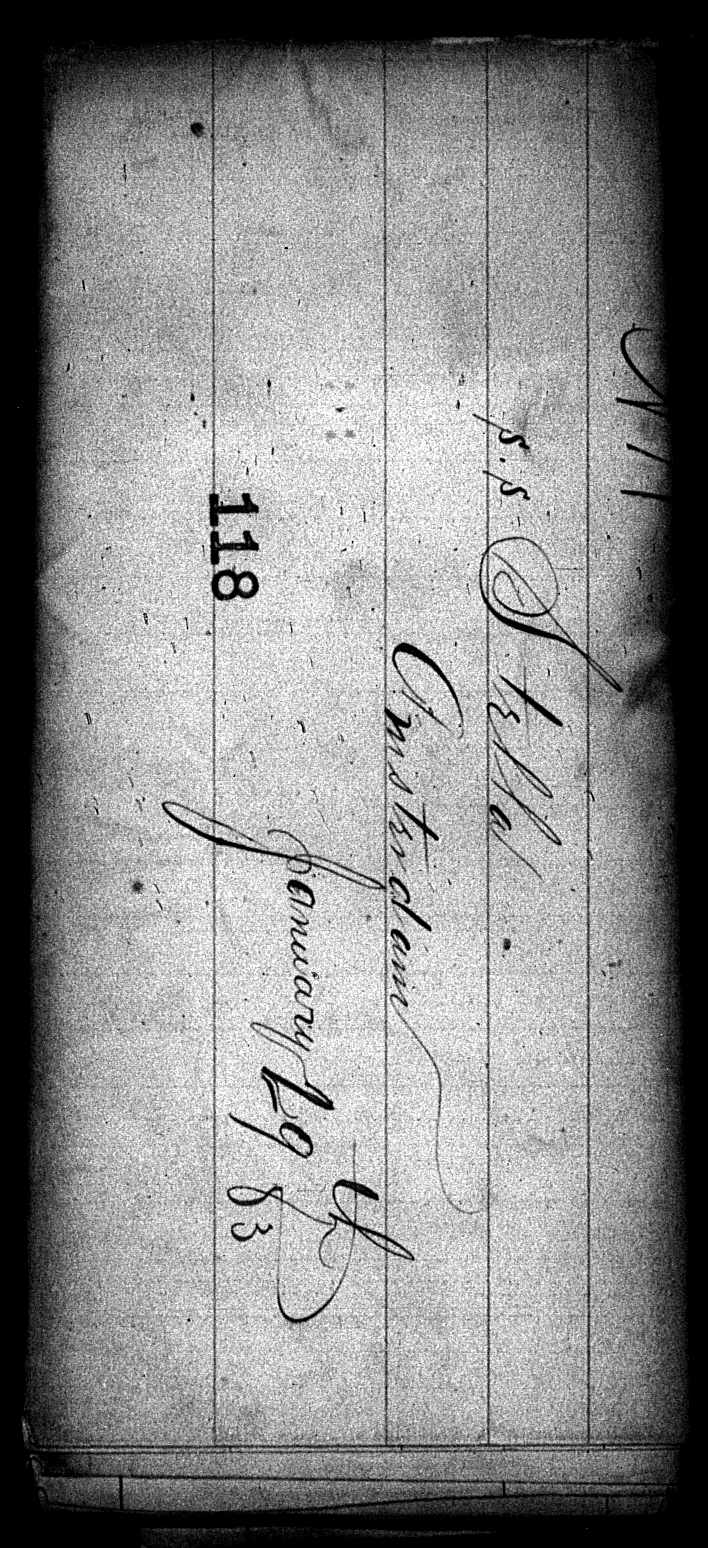 s.s. Stella
Amsterdam
January 29th 83
118